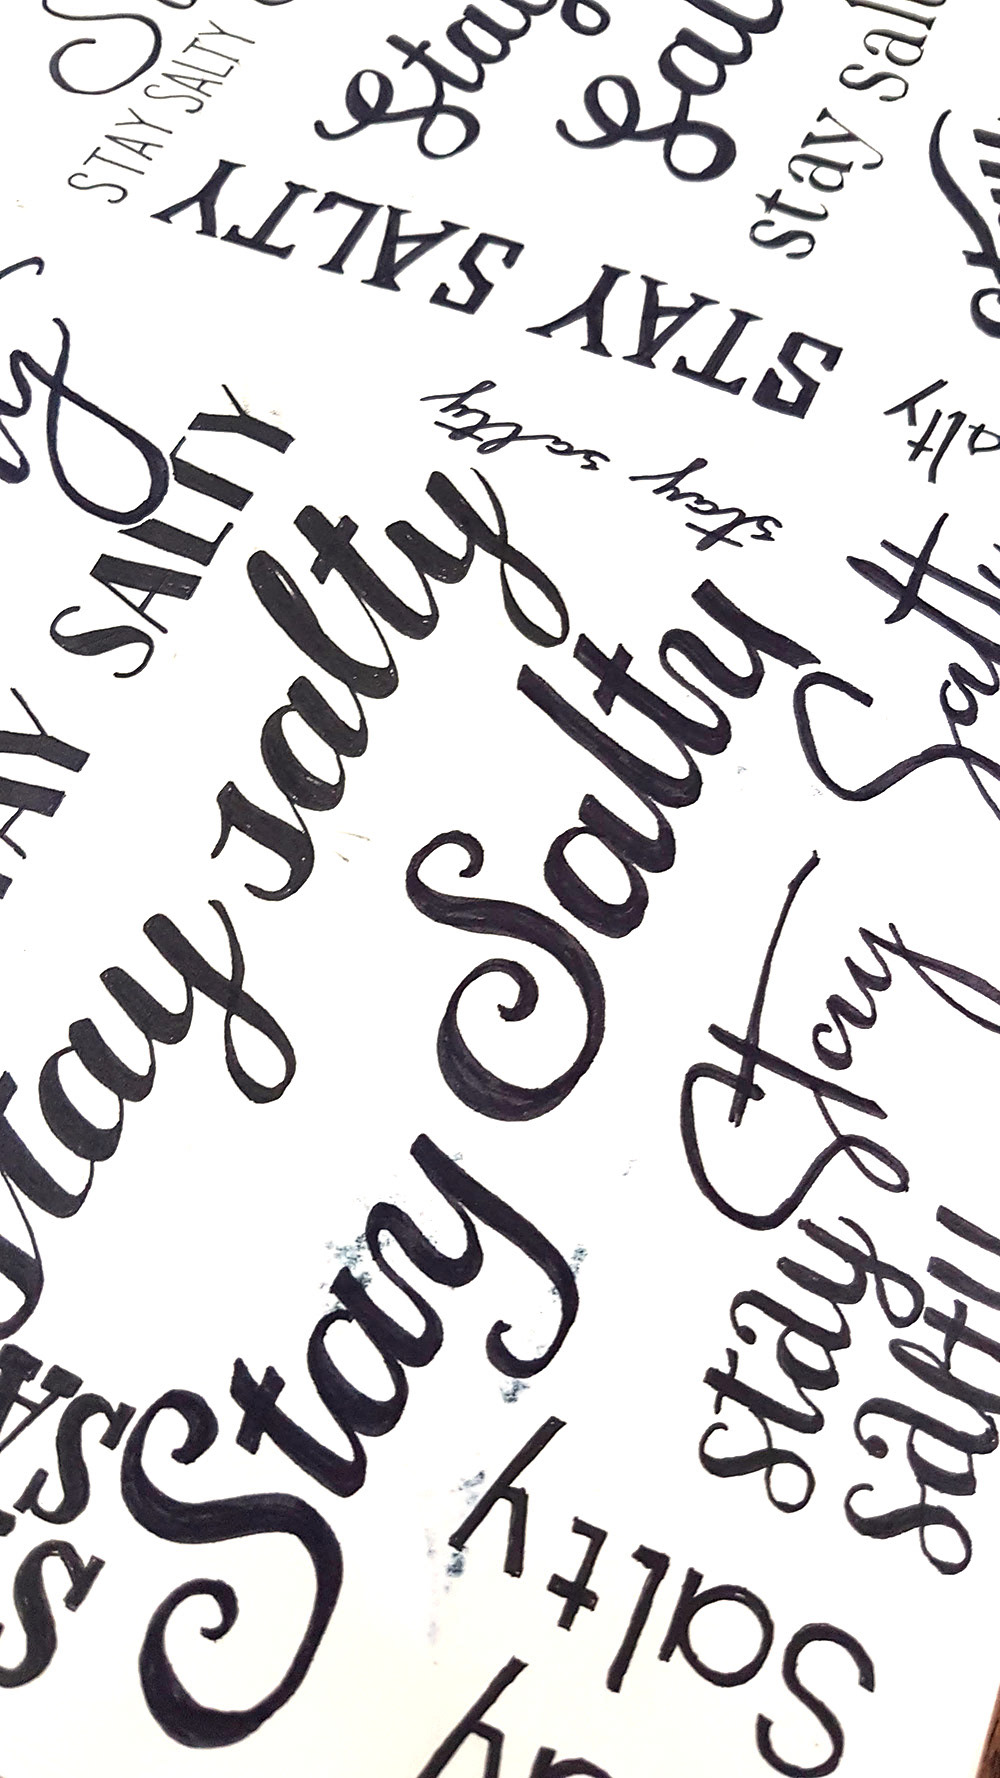 STAY SALTY
Stay
Sal
stay sal
STAY SALTY
stay salty
alty
SALTY
AY
stay salty
Stay Salty
Salt
Stay
stay
salty
SA
S
Salty
ay